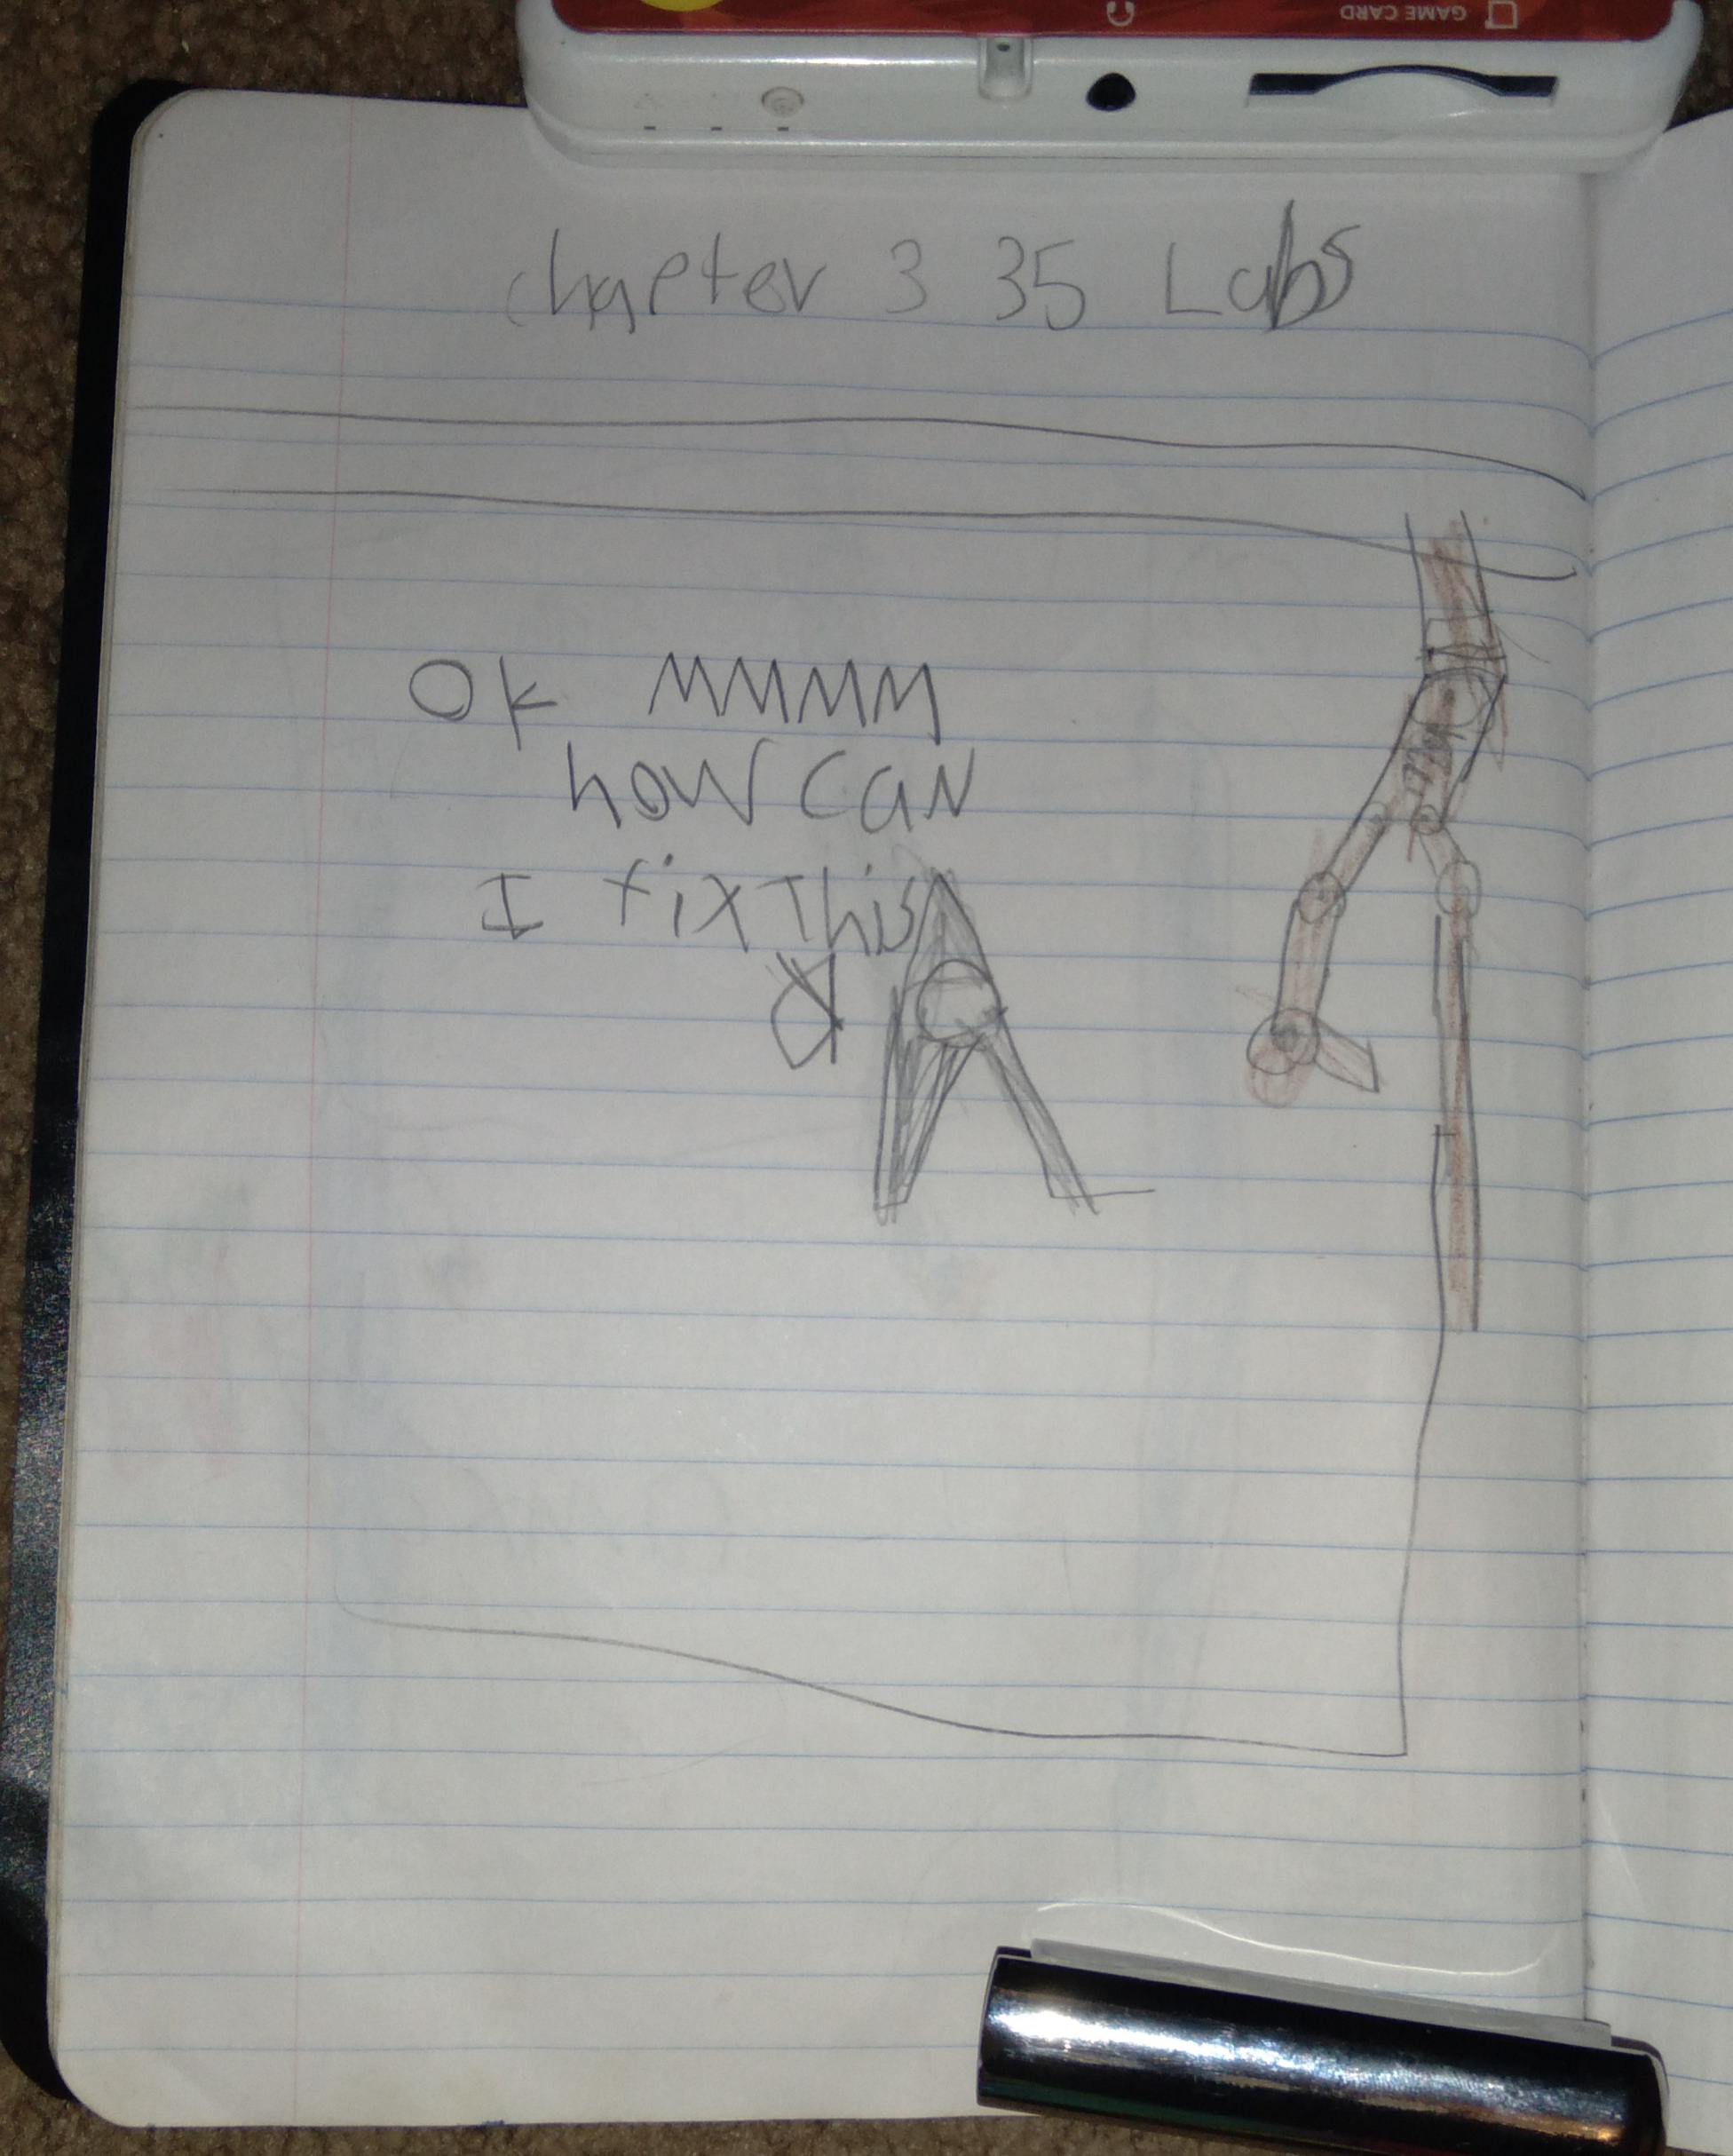 GAME CARD
Chapter 3 35 Labs
Ok MMMM
how can
I fix This